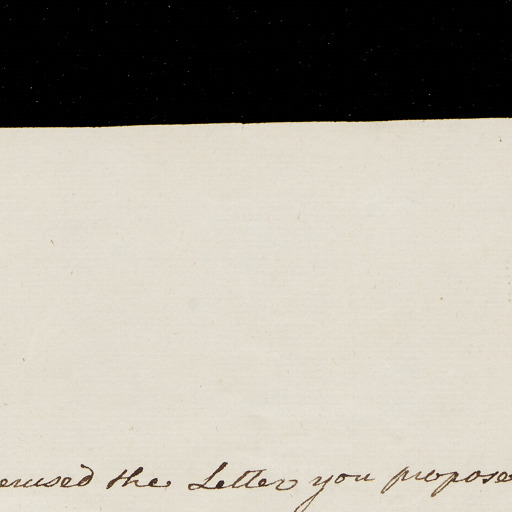 erused the Letter you propose